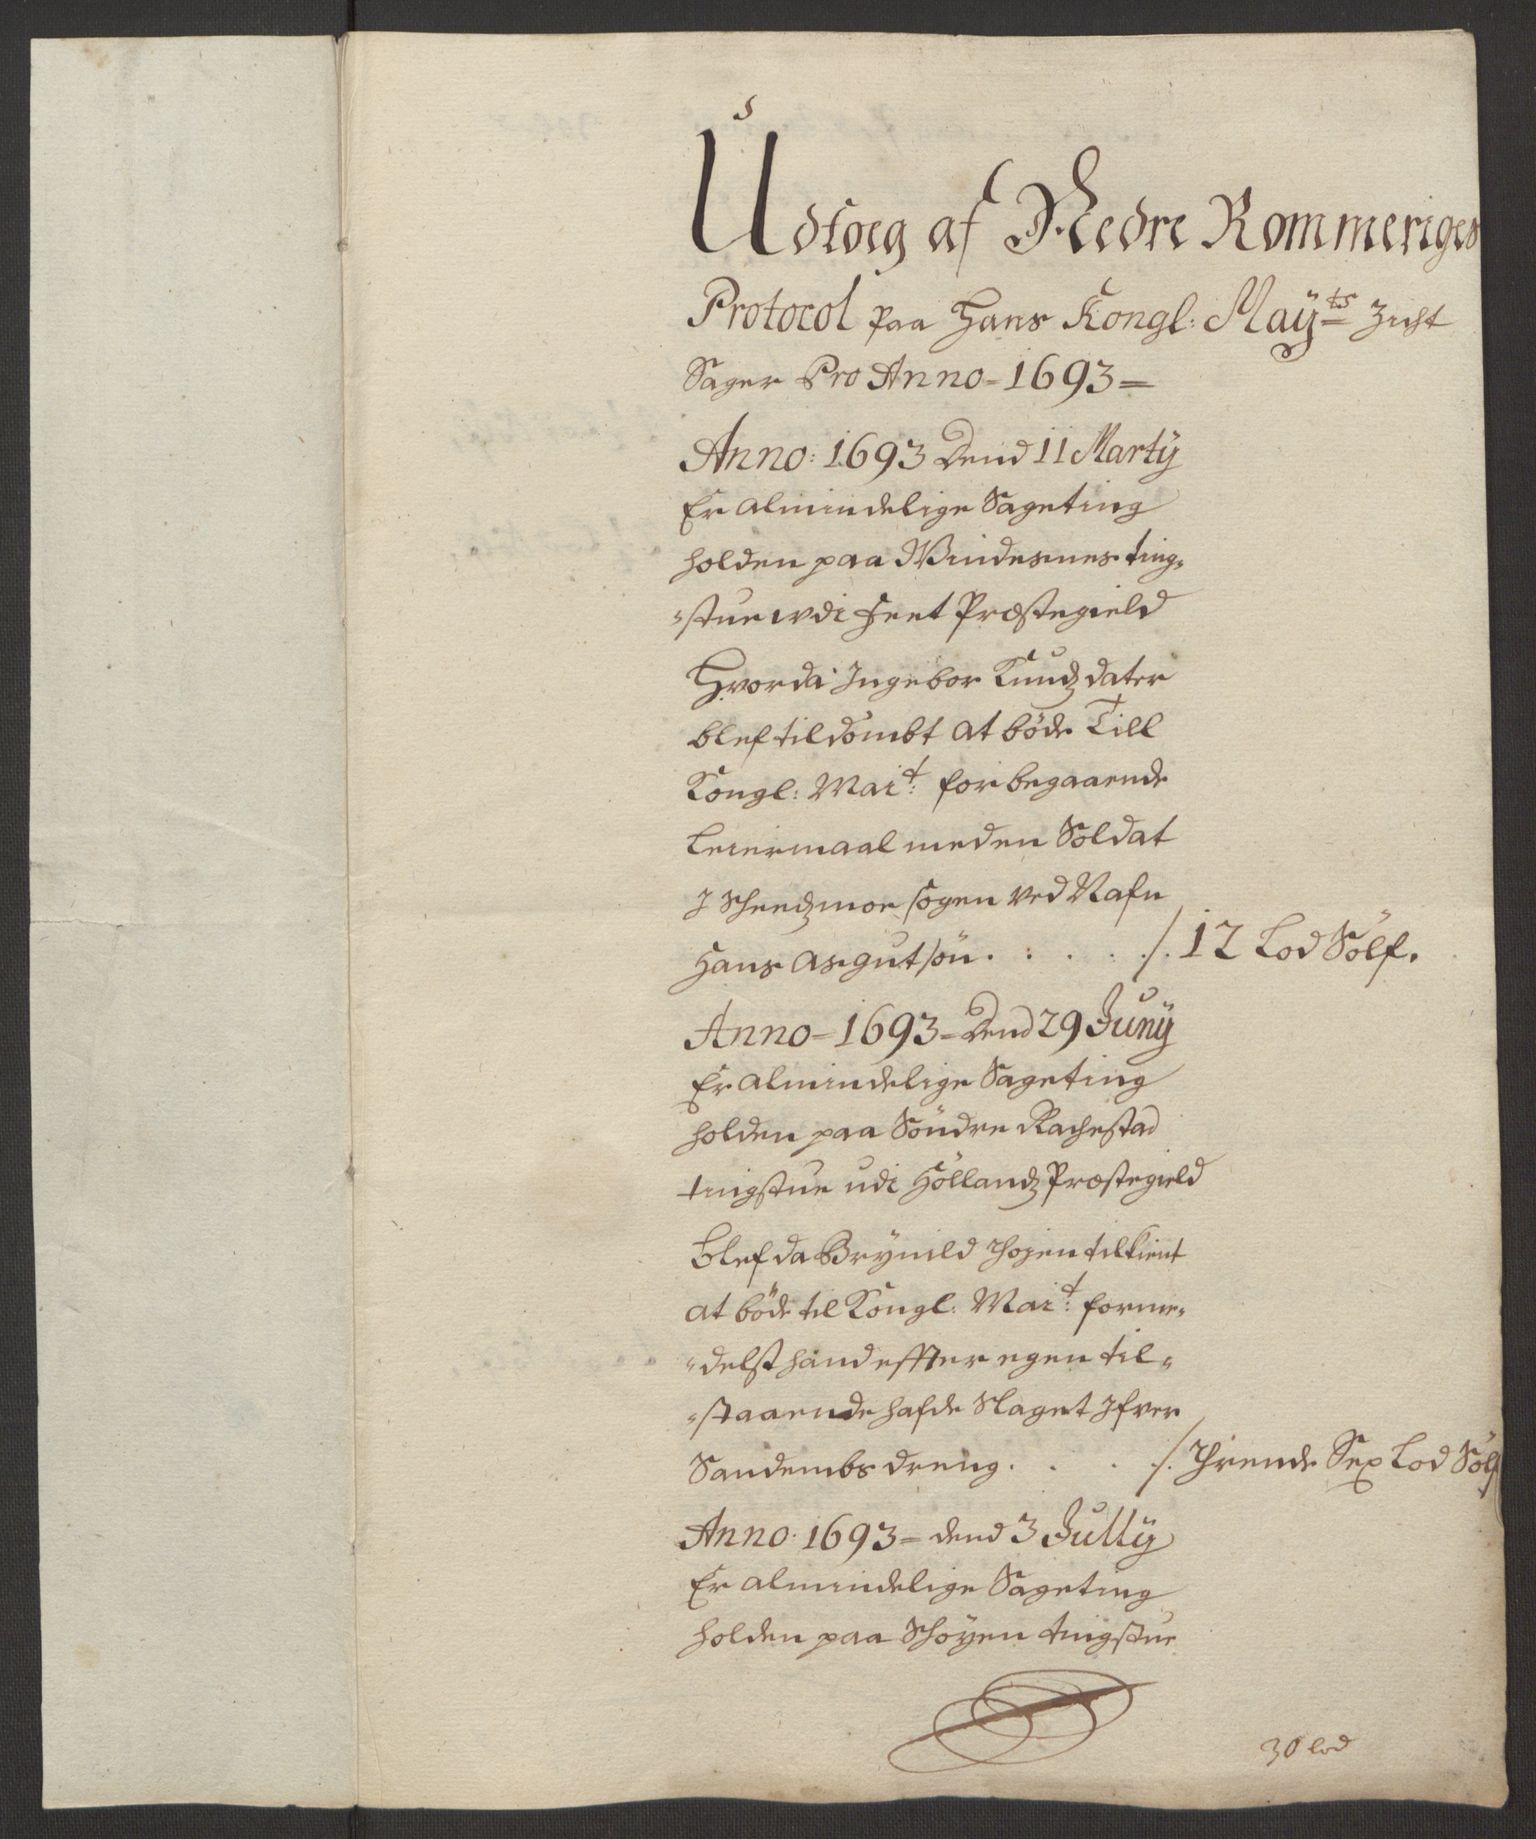 Udtoeg af Nedre Rommeriges
Protocol paa Hans Kongl: Maÿts Zicht
Sager Pro Anno = 1693 =
Anno: 1693 Dend 11 Martÿ
Er Almindelige Sageting
holden paa Windesnes ting=
=stue wdi Feet Præstegield
Hvor da Ingebor Knudz dater
blef tildömbt at böde Till
Kongl: Mait: for begaaende
Leiermaal med en Soldat
I Scheedzmoe sogen ved Nafn
Hans Asgutsön . : . . ./. 12 Lod Sölf.
Anno = 1693 = Dend 29 Junÿ
Er Almindelige Sageting
holden paa Söndre Rachestad
tingstue udi Höllandz Præstegield
Blef da Brÿnild tilkient
at böde til Kongl: Mait: forme=
=delst hand effter egen til=
=staaende hafde Slaget Ifver
Sandembs dreng . . . ./. Thrende Sex Lod Sölf
Anno 1693 = dend 3 Jullÿ
Er Almindelige Sageting
holden paa Schöÿen tingstue
30 lod